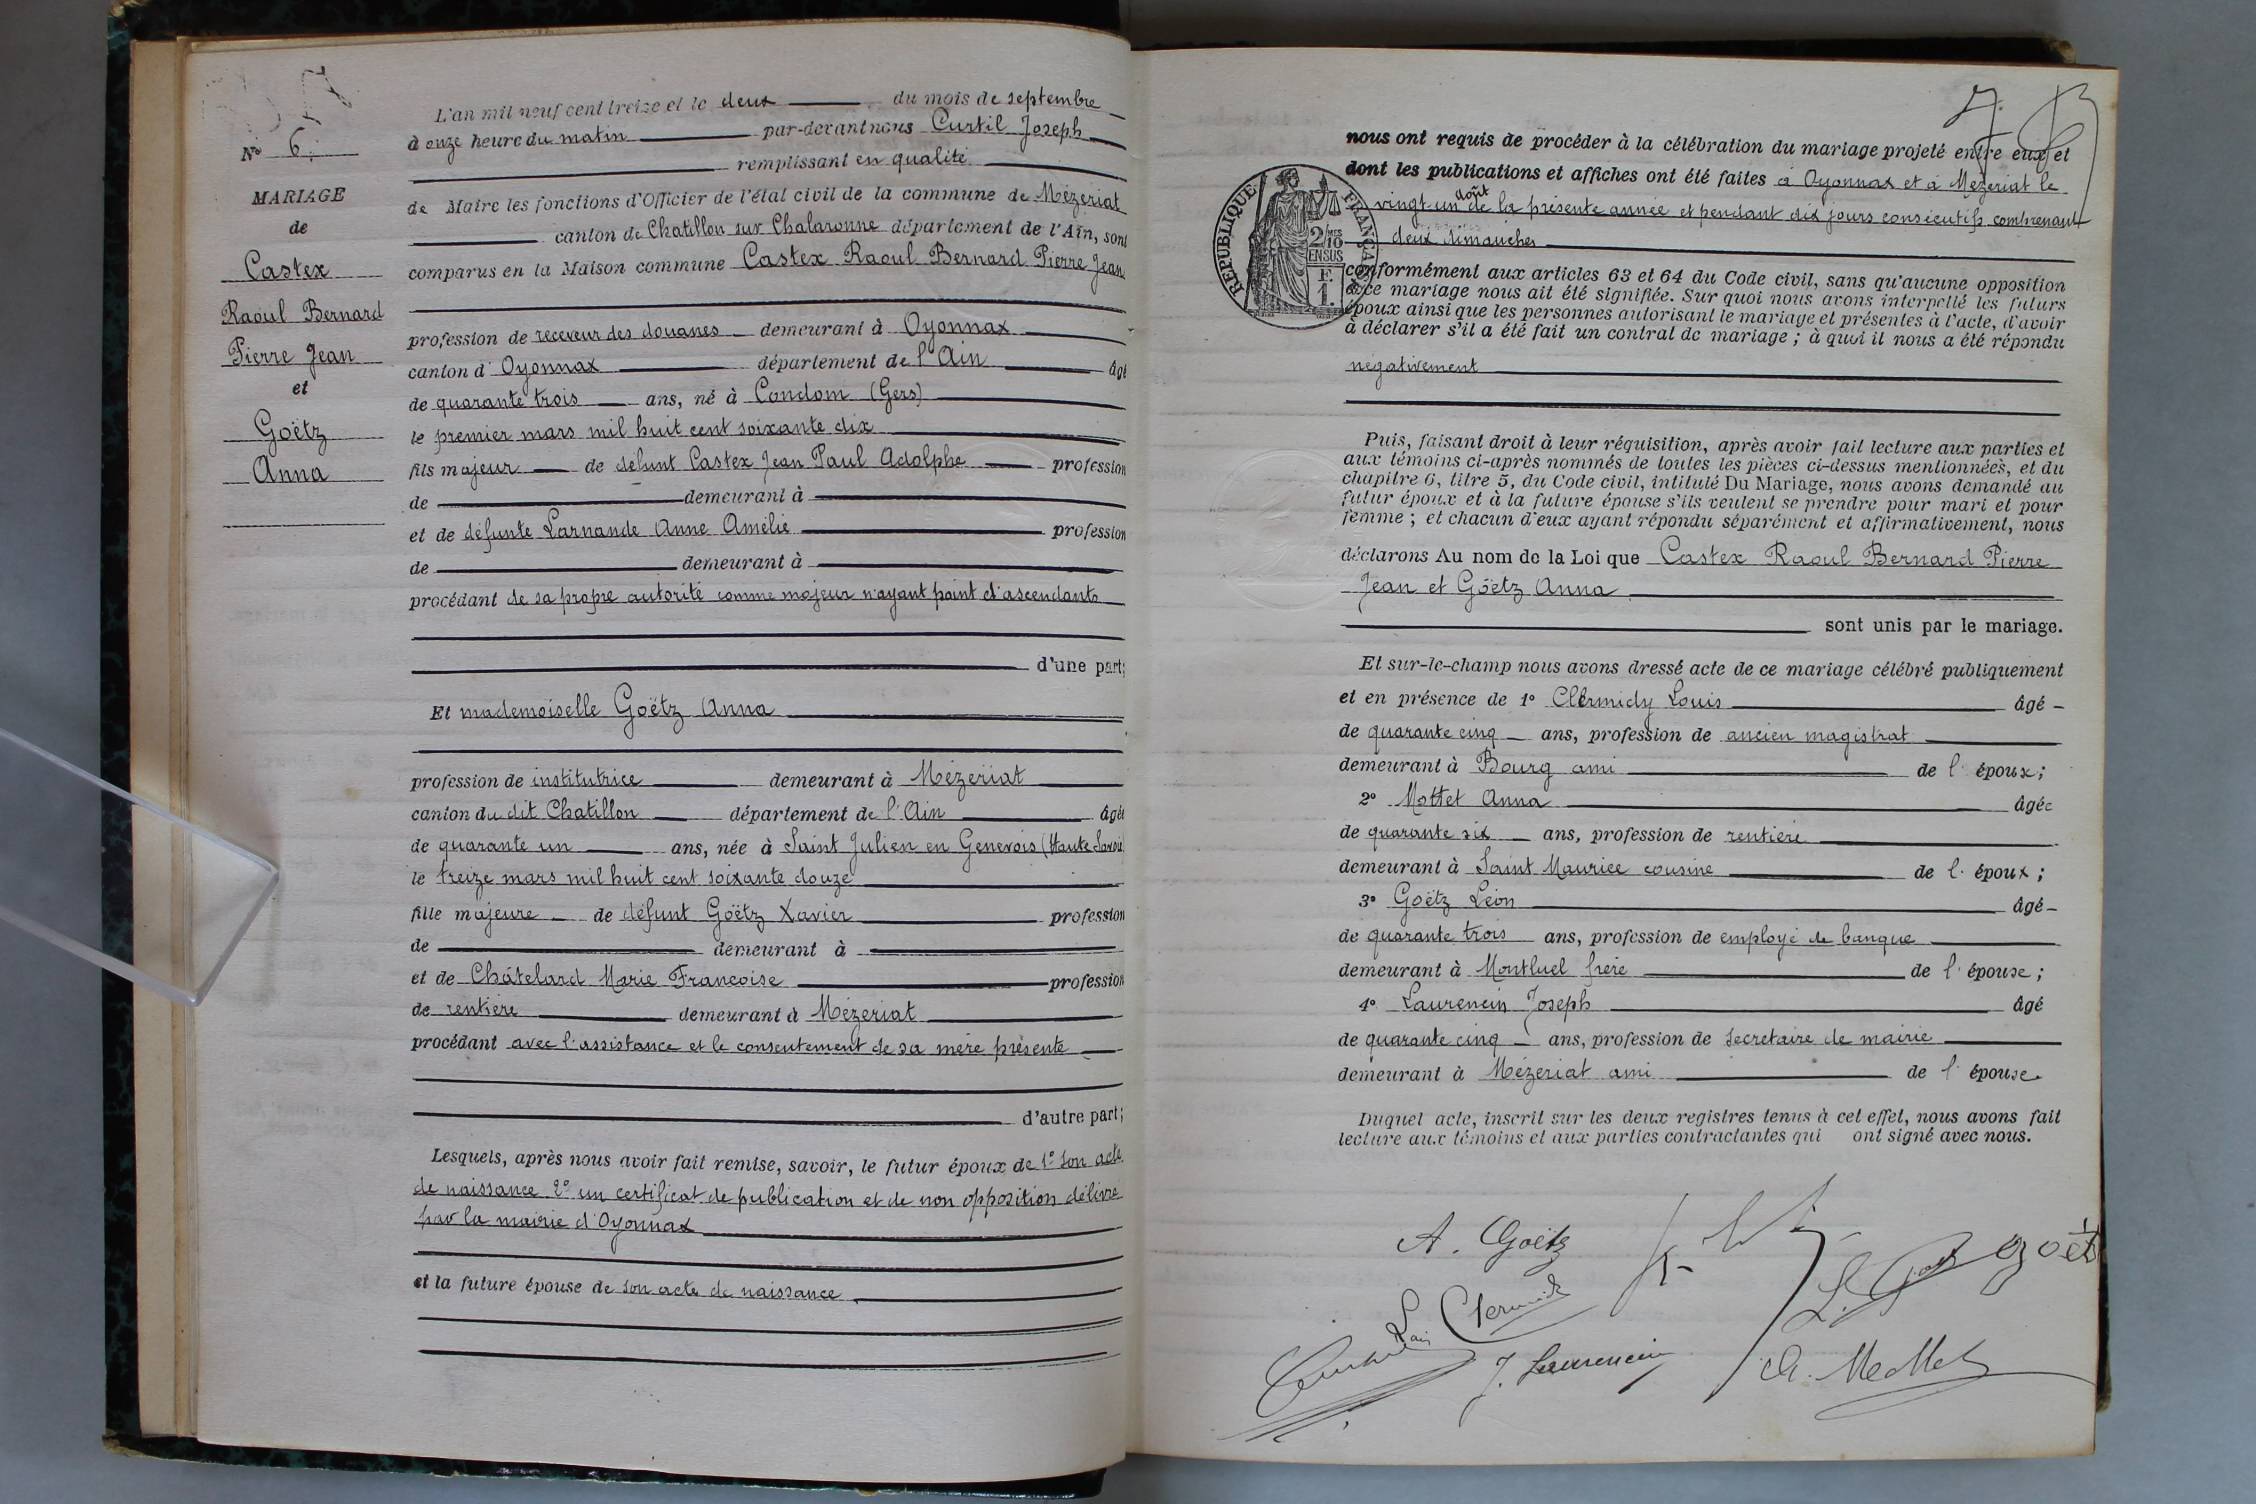 N° 6.
MARIAGE
de
Castex
Raoul Bernard
Pierre Jean
et
Goëtz
Anna
L'an mil neuf cent treize et le deux du mois de septembre
à onze heure du matin par-devant nous Curtil Joseph
remplissant en qualité
de Maire les fonctions d'Officier de l'état civil de la commune de Mézériat
canton de Chatillon sur Chalaronne département de l'Ain, sont
comparus en la Maison commune Castex Raoul Bernard Pierre Jean
profession de receveur des douanes demeurant à Oyonnax
canton d'Oyonnax département de l'Ain âgé
de quarante trois ans, né à Condom (Gers)
le premier mars mil huit cent soixante dix
fils majeur de défunt Castex Jean Paul Adolphe profession
de demeurant à
et de défunte Larnande Anne Amélie profession
de demeurant à
procédant de sa propre autorité comme majeur n'ayant point d'ascendants
d'une part;
Et mademoiselle Goëtz Anna
profession de institutrice demeurant à Mézériat
canton du dit Chatillon département de l'Ain âgée
de quarante un ans, née à Saint Julien en Genevois (Haute Savoie)
le treize mars mil huit cent soixante douze
fille majeure de défunt Goëtz Xavier profession
de demeurant à
et de Châtelard Marie Françoise profession
de rentière demeurant à Mézériat
procédant avec l'assistance et le consentement de sa mère présente
d'autre part;
Lesquels, après nous avoir fait remise, savoir, le futur époux de 1° son acte
de naissance 2° un certificat de publication et de non opposition délivré
par la mairie d'Oyonnax
et la future épouse de son acte de naissance
7.
nous ont requis de procéder à la célébration du mariage projeté entre eux et
dont les publications et affiches ont été faites à Oyonnax et à Mézériat le
août
vingt un de la présente année et pendant dix jours consécutifs comprenant
deux dimanches
RÉPUBLIQUE FRANÇAISE
2/10
EN SUS
F.
1.
conformément aux articles 63 et 64 du Code civil, sans qu'aucune opposition
à ce mariage nous ait été signifiée. Sur quoi nous avons interpellé les futurs
époux ainsi que les personnes autorisant le mariage et présentes à l'acte, d'avoir
à déclarer s'il a été fait un contrat de mariage; à quoi il nous a été répondu
négativement
Puis, faisant droit à leur réquisition, après avoir fait lecture aux parties et
aux témoins ci-après nommés de toutes les pièces ci-dessus mentionnées, et du
chapitre 6, titre 5, du Code civil, intitulé Du Mariage, nous avons demandé au
futur époux et à la future épouse s'ils veulent se prendre pour mari et pour
femme; et chacun d'eux ayant répondu séparément et affirmativement, nous
déclarons Au nom de la Loi que Castex Raoul Bernard Pierre
Jean et Goëtz Anna
sont unis par le mariage.
Et sur-le-champ nous avons dressé acte de ce mariage célébré publiquement
et en présence de 1° Clermidy Louis âgé
de quarante cinq ans, profession de ancien magistrat
demeurant à Bourg ami de l'époux;
2° Mottet Anna âgée
de quarante six ans, profession de rentière
demeurant à Saint Maurice cousine de l'époux;
3° Goëtz Léon âgé
de quarante trois ans, profession de employé de banque
demeurant à Montluel frère de l'épouse;
4° Laurencin Joseph âgé
de quarante cinq ans, profession de secrétaire de mairie
demeurant à Mézériat ami de l'épouse.
Duquel acte, inscrit sur les deux registres tenus à cet effet, nous avons fait
lecture aux témoins et aux parties contractantes qui ont signé avec nous.
A. Goëtz
L. Goëtz
Goët
Louis Clermidy
J. Laurencin
A. Mottet